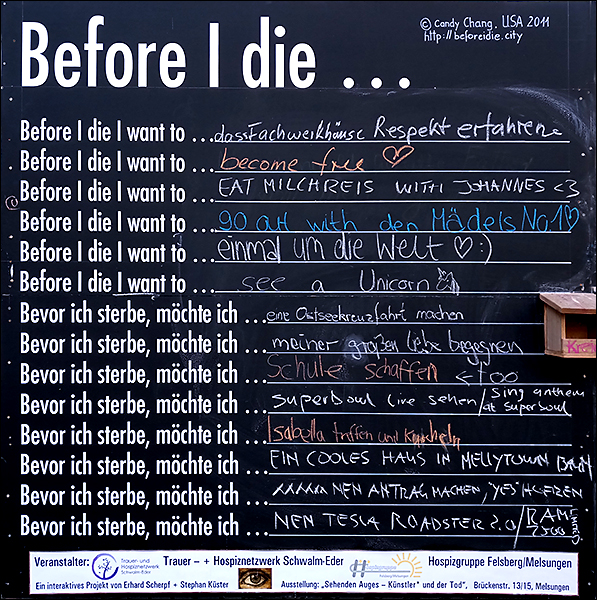 Before I die ...
© Candy Chang. USA 2011
http://beforeidie.city
Before I die I want to ... dass Fachwerkhäuse Respekt erfahren
Before I die I want to ... become free ♡
Before I die I want to ... EAT MILCHREIS WITH JOHANNES <3
Before I die I want to ... go out with den Mädels No1♡
Before I die I want to ... einmal um die Welt ♡ :)
Before I die I want to ... see a Unicorn
Bevor ich sterbe, möchte ich ... eine Ostseekreuzfahrt machen
Bevor ich sterbe, möchte ich ... meiner großen Liebe begegnen
Bevor ich sterbe, möchte ich ... Schule schaffen ← too
Bevor ich sterbe, möchte ich ... superbowl live sehen / sing anthem at superbowl
Bevor ich sterbe, möchte ich ... Isabella treffen und kuscheln
Bevor ich sterbe, möchte ich ... EIN COOLES HAUS IN MELLYTOWN
Bevor ich sterbe, möchte ich ... NEN ANTRAG MACHEN, "YES" HOEREN
Bevor ich sterbe, möchte ich ... NEN TESLA ROADSTER 2.0 / RAM 1500
Veranstalter: Trauer- und Hospiznetzwerk Schwalm-Eder Trauer – + Hospiznetzwerk Schwalm-Eder Hospizgruppe Felsberg/Melsungen Hospizgruppe Felsberg/Melsungen
Ein interaktives Projekt von Erhard Scherpf + Stephan Küster Ausstellung: „Sehenden Auges – Künstler* und der Tod", Brückenstr. 13/15, Melsungen